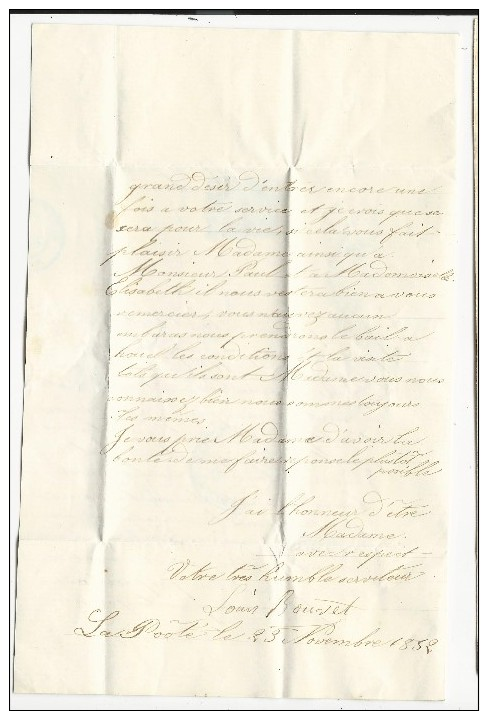 grand désir d'entrer encore une
fois a votre service et je vois que sa
sera pour la vie, si cela vous fait
plaisir Madame ainsi qu'a
Monsieur Paul et a Mademoiselle
Elisabeth il nous restera bien a vous
remercier, vous n'aurez aucun
enbaras nous prendrons le bail a
les conditions et la visite
tell qu'ils sont Madame vous nous
connaissez bien nous sommes toujours
les mêmes.
Je vous prie Madame d'avoir la
bonté de me faire réponse le plustôt
posible
J'ai l'honneur d'être
Madame
avez respect
Votre très humble serviteur
Louis Bouvet
La Pooté le 23 Novembre 1852